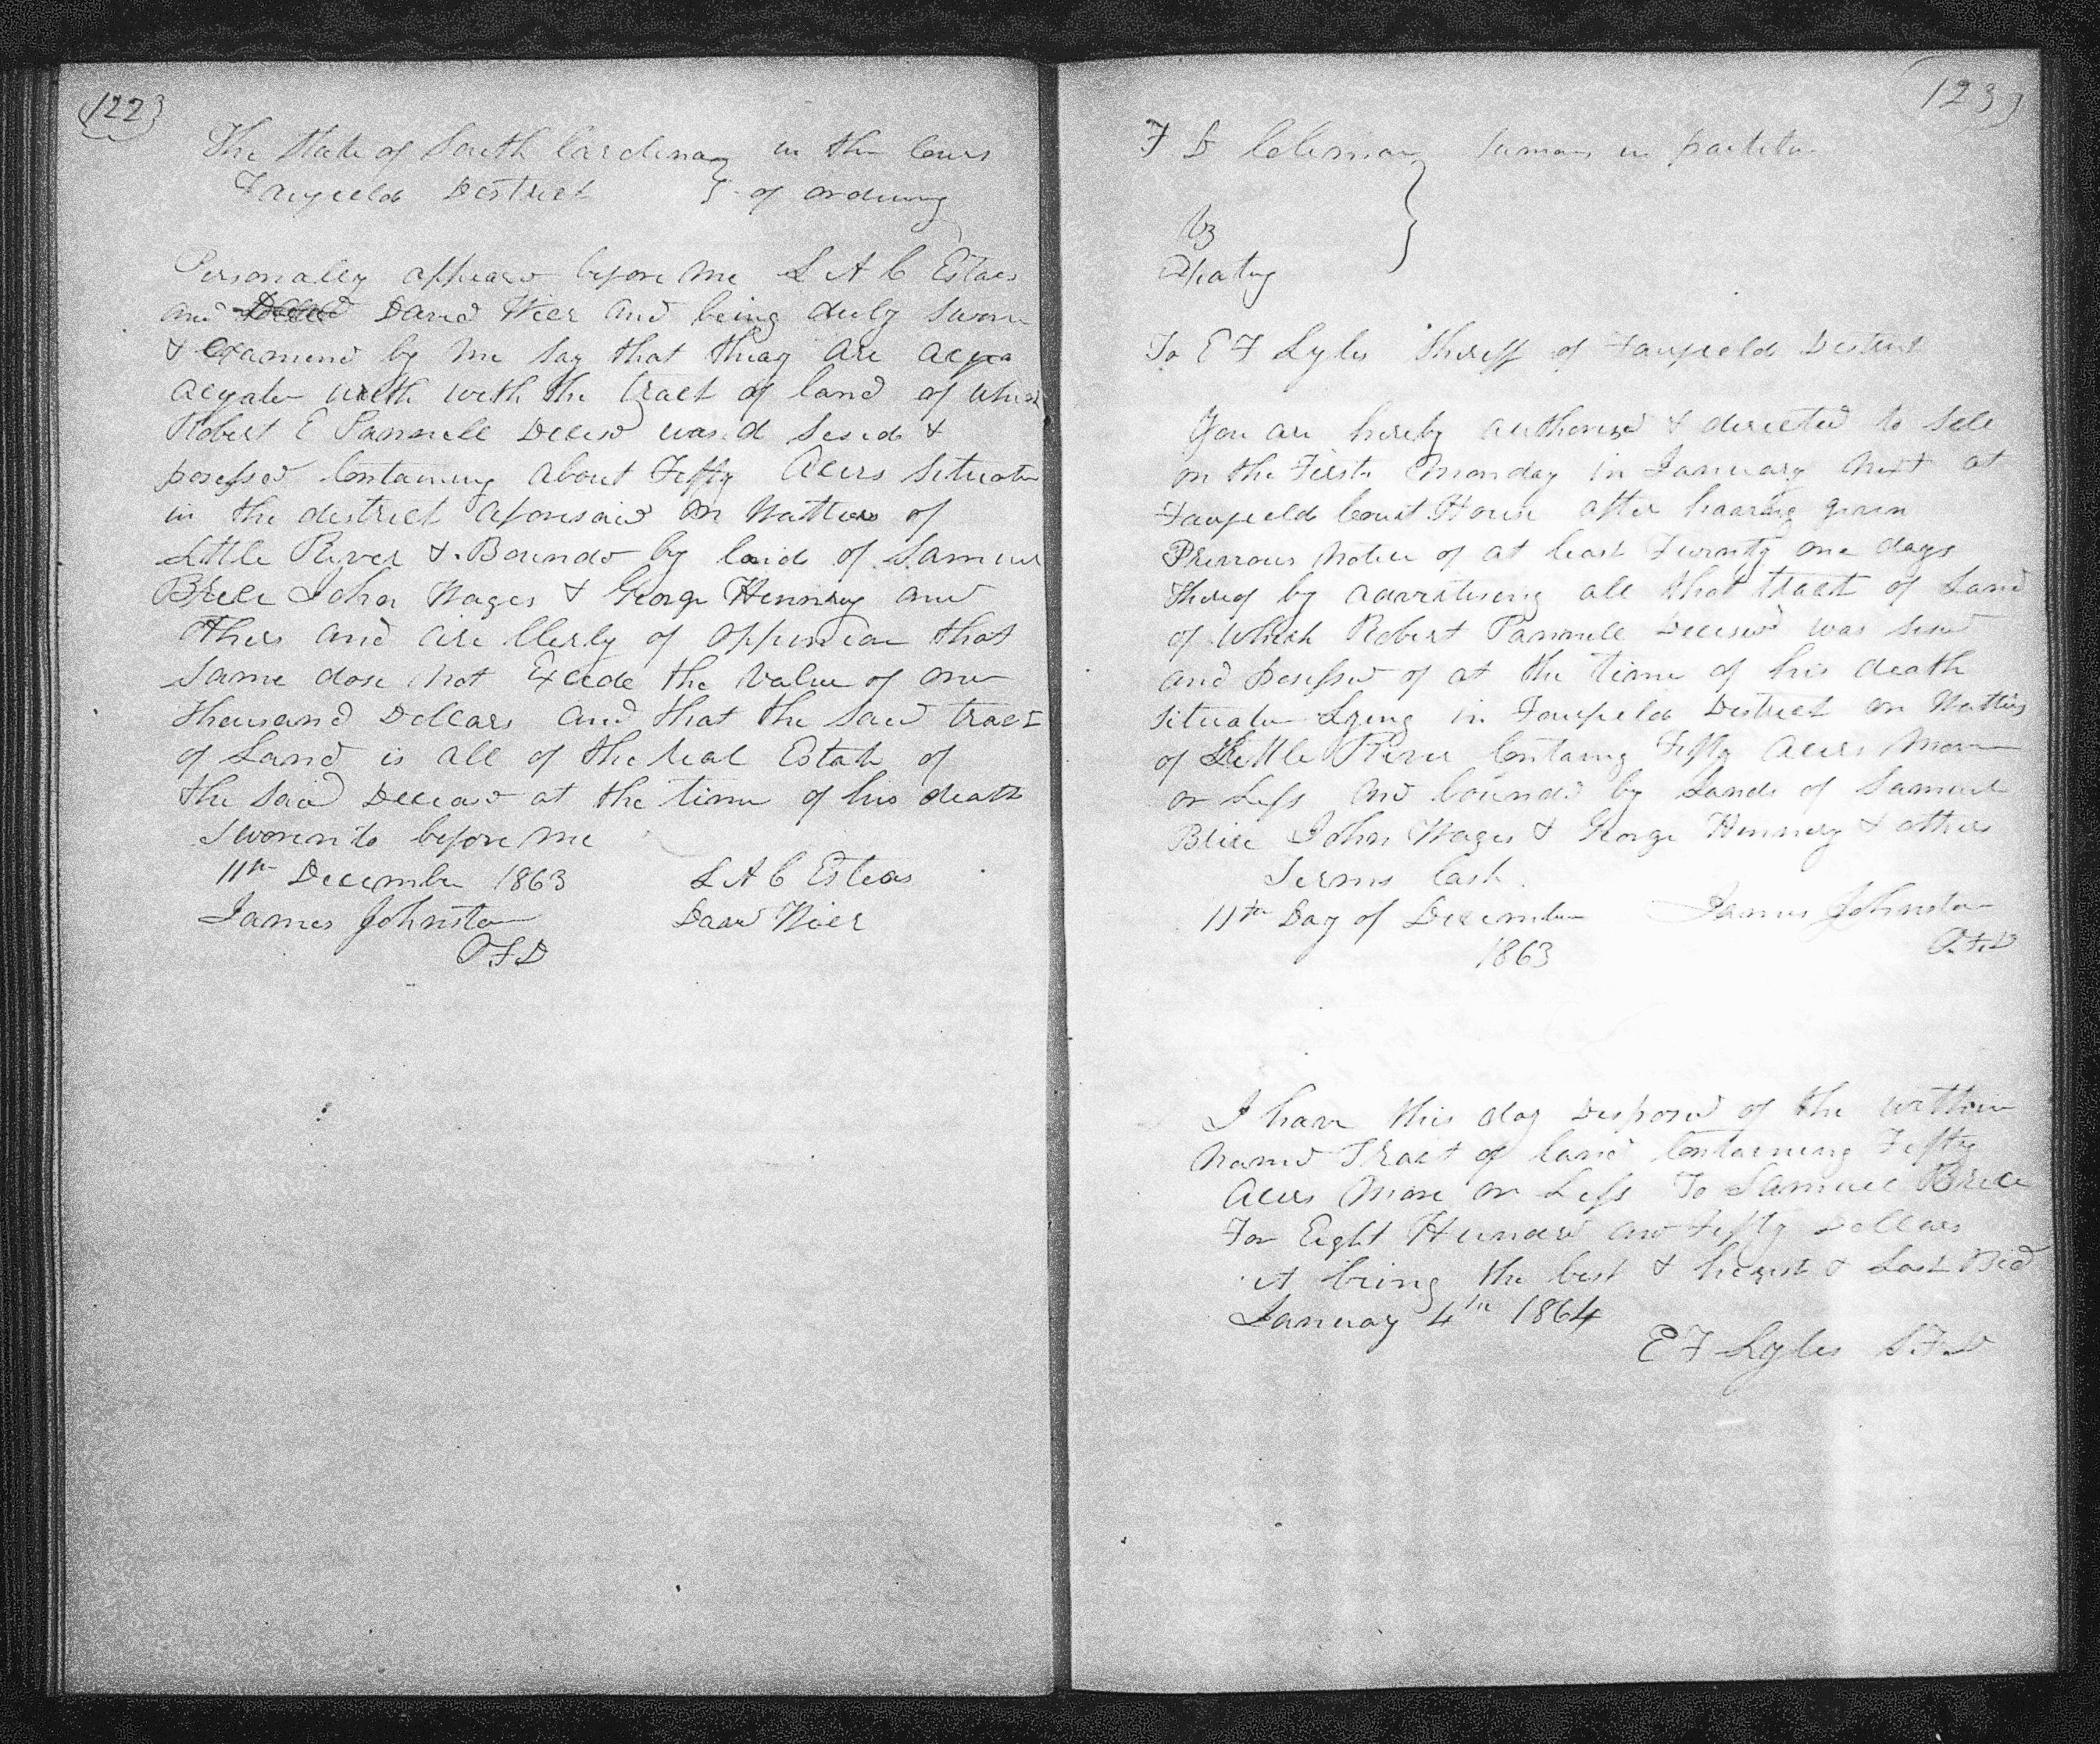 122
The State of South Carolina } in the Cour
Fairfield District } of ordinary
Personally appeard before me L A C Estaes
and David Wier and being duly sworn
& examined by me say that theay are acqua
acquate with with the tract of land of which
Robert E Pannell Decesd was d sesed &
posessed Containing about Fifty Acers Situate
in the district aforesaid on Watters of
Little River & Bounded by land of Samuel
Brice John Wages & George Hennry and
others and are Clerly of oppinion that
same dose not Excede the Value of one
thousand Dollars and that the said tract
of Land is all of the real Estate of
the said Deceasd at the time of his death
Sworn to before me
11th December 1863 L A C Esteas
James Johnston David Wier
O F D
123
F D Coleman } Sumons in partition
vs
To E F Lyles Sheriff of Fairfield District
You are hereby authorised & directed to sell
on the First Monday in January next at
Fairfield Court House after haaving given
Previous Notice of at least Twenty one days
thereof by advertising all that tract of Land
of which Robert Pannell Decesed was sesed
and posessed of at the time of his death
situate Lying in Fairfield District on Watters
of Little River Containg Fifty Acers More
or Less and bounded by Lands of Samuel
Brice John Wages & George Hennry & others
Terms Cash
11th Day of December James Johnston
1863 O.F.D
I have this day Disposed of the within
named Tract of land Containing Fifty
Acers More or Less To Samuel Brice
For Eight Hundred and Fifty Dollars
it being the best & highest & Last Bid
January 4th 1864
E F Lyles S.F.D